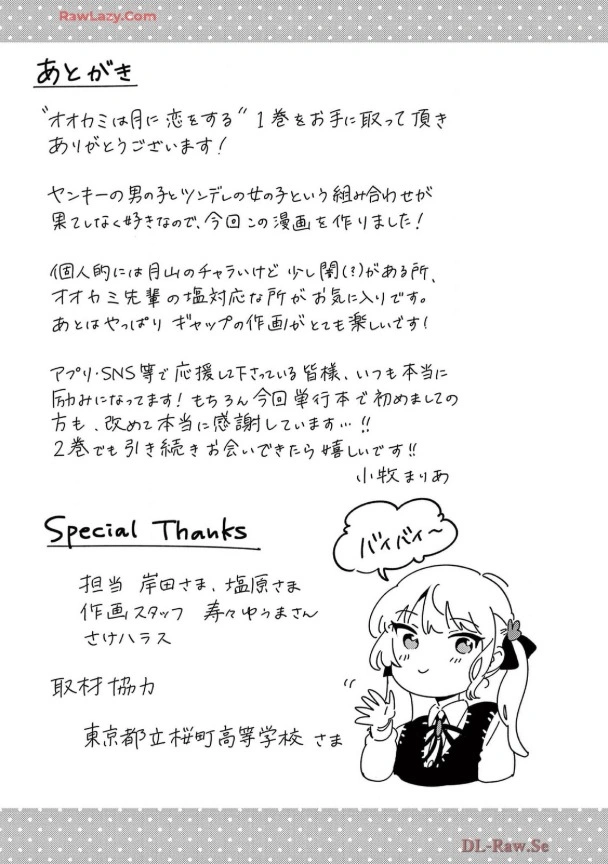 RawLazy.Com
あとがき
"オオカミは月に恋をする" 1巻をお手に取って頂き
ありがとうございます!
ヤンキーの男の子とツンデレの女の子という組み合わせが
果てしなく好きなので、今回この漫画を作りました!
個人的には月山のチャラいけど少し闇(?)がある所、
オオカミ先輩の塩対応な所がお気に入りです。
あとはやっぱりギャップの作画がとても楽しいです!
アプリ・SNS等で応援して下さっている皆様、いつも本当に
励みになってます!もちろん今回単行本で初めましての
方も、改めて本当に感謝しています…!!
2巻でも引き続きお会いできたら嬉しいです!!
小牧まりあ
Special Thanks
バイバイ〜
担当 岸田さま、塩原さま
作画スタッフ 寿々ゆうまさん
さけハラス
取材協力
東京都立桜町高等学校 さま
DL-Raw.Se